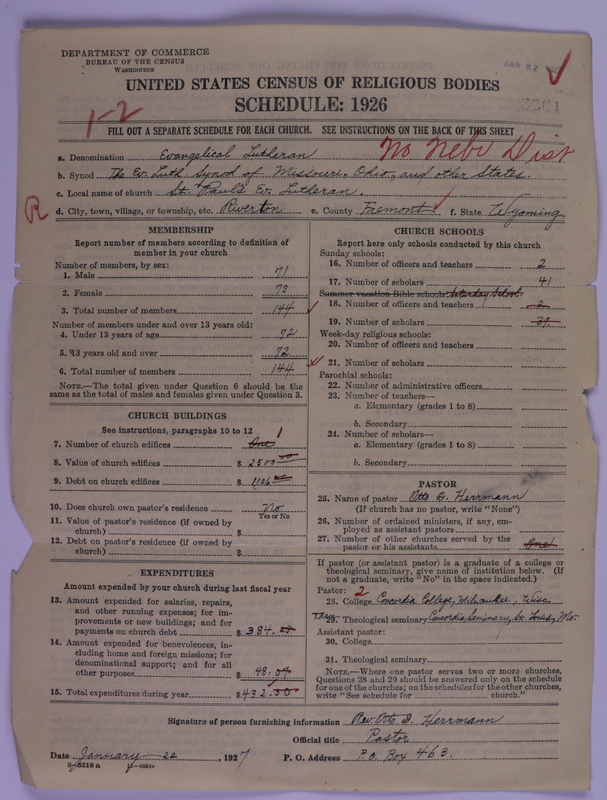 DEPARTMENT OF COMMERCE
BUREAU OF THE CENSUS
WASHINGTON
JAN 22 192
UNITED STATES CENSUS OF RELIGIOUS BODIES
SCHEDULE: 1926
1-2
FILL OUT A SEPARATE SCHEDULE FOR EACH CHURCH. SEE INSTRUCTIONS ON THE BACK OF THIS SHEET
No Nebr Dist
a. Denomination Evangelical Lutheran
b. Synod The Ev. Luth. Synod of Missouri, Ohio, and other States.
c. Local name of church St. Paul's Ev. Lutheran.
R
d. City, town, village, or township, etc. Riverton e. County Fremont f. State Wyoming
MEMBERSHIP
Report number of members according to definition of member in your church
Number of members, by sex:
1. Male 71
2. Female 73
3. Total number of members 144
Number of members under and over 13 years old:
4. Under 13 years of age 72
5. 13 years old and over 72
6. Total number of members 144
NOTE.—The total given under Question 6 should be the
same as the total of males and females given under Question 3.
CHURCH BUILDINGS
See instructions, paragraphs 10 to 12
7. Number of church edifices One 1
8. Value of church edifices $ 2500 00
9. Debt on church edifices $ 1106 00
10. Does church own pastor's residence No
Yes or No
11. Value of pastor's residence (if owned by
church) $
12. Debt on pastor's residence (if owned by
church) $
EXPENDITURES
Amount expended by your church during last fiscal year
13. Amount expended for salaries, repairs,
and other running expenses; for im-
provements or new buildings; and for
payments on church debt $ 384.
14. Amount expended for benevolences, in-
cluding home and foreign missions; for
denominational support; and for all
other purposes 48.07
15. Total expenditures during year $ 432.30
CHURCH SCHOOLS
Report here only schools conducted by this church
Sunday schools:
16. Number of officers and teachers 2
17. Number of scholars 41
Summer vacation Bible schools: Saturday School
18. Number of officers and teachers 2
19. Number of scholars 39
Week-day religious schools:
20. Number of officers and teachers
21. Number of scholars
Parochial schools:
22. Number of administrative officers
23. Number of teachers—
a. Elementary (grades 1 to 8)
b. Secondary
24. Number of scholars—
a. Elementary (grades 1 to 8)
b. Secondary
PASTOR
25. Name of pastor Otto D. Herrmann
(If church has no pastor, write "None")
26. Number of ordained ministers, if any, em-
ployed as assistant pastors
27. Number of other churches served by the
pastor or his assistants One!
If pastor (or assistant pastor) is a graduate of a college or
theological seminary, give name of institution below. (If
not a graduate, write "No" in the space indicated.)
Pastor: 2
28. College Concordia College, Milwaukee, Wisc.
29. Theological seminary Concordia Seminary, St. Louis, Mo.
Assistant pastor:
30. College
31. Theological seminary
NOTE.—Where one pastor serves two or more churches,
Questions 28 and 29 should be answered only on the schedule
for one of the churches; on the schedules for the other churches,
write "See schedule for church."
Signature of person furnishing information Rev. Otto D. Herrmann
Official title Pastor
Date January 22, 1927 P. O. Address P.O. Box 463.
8-5518 a